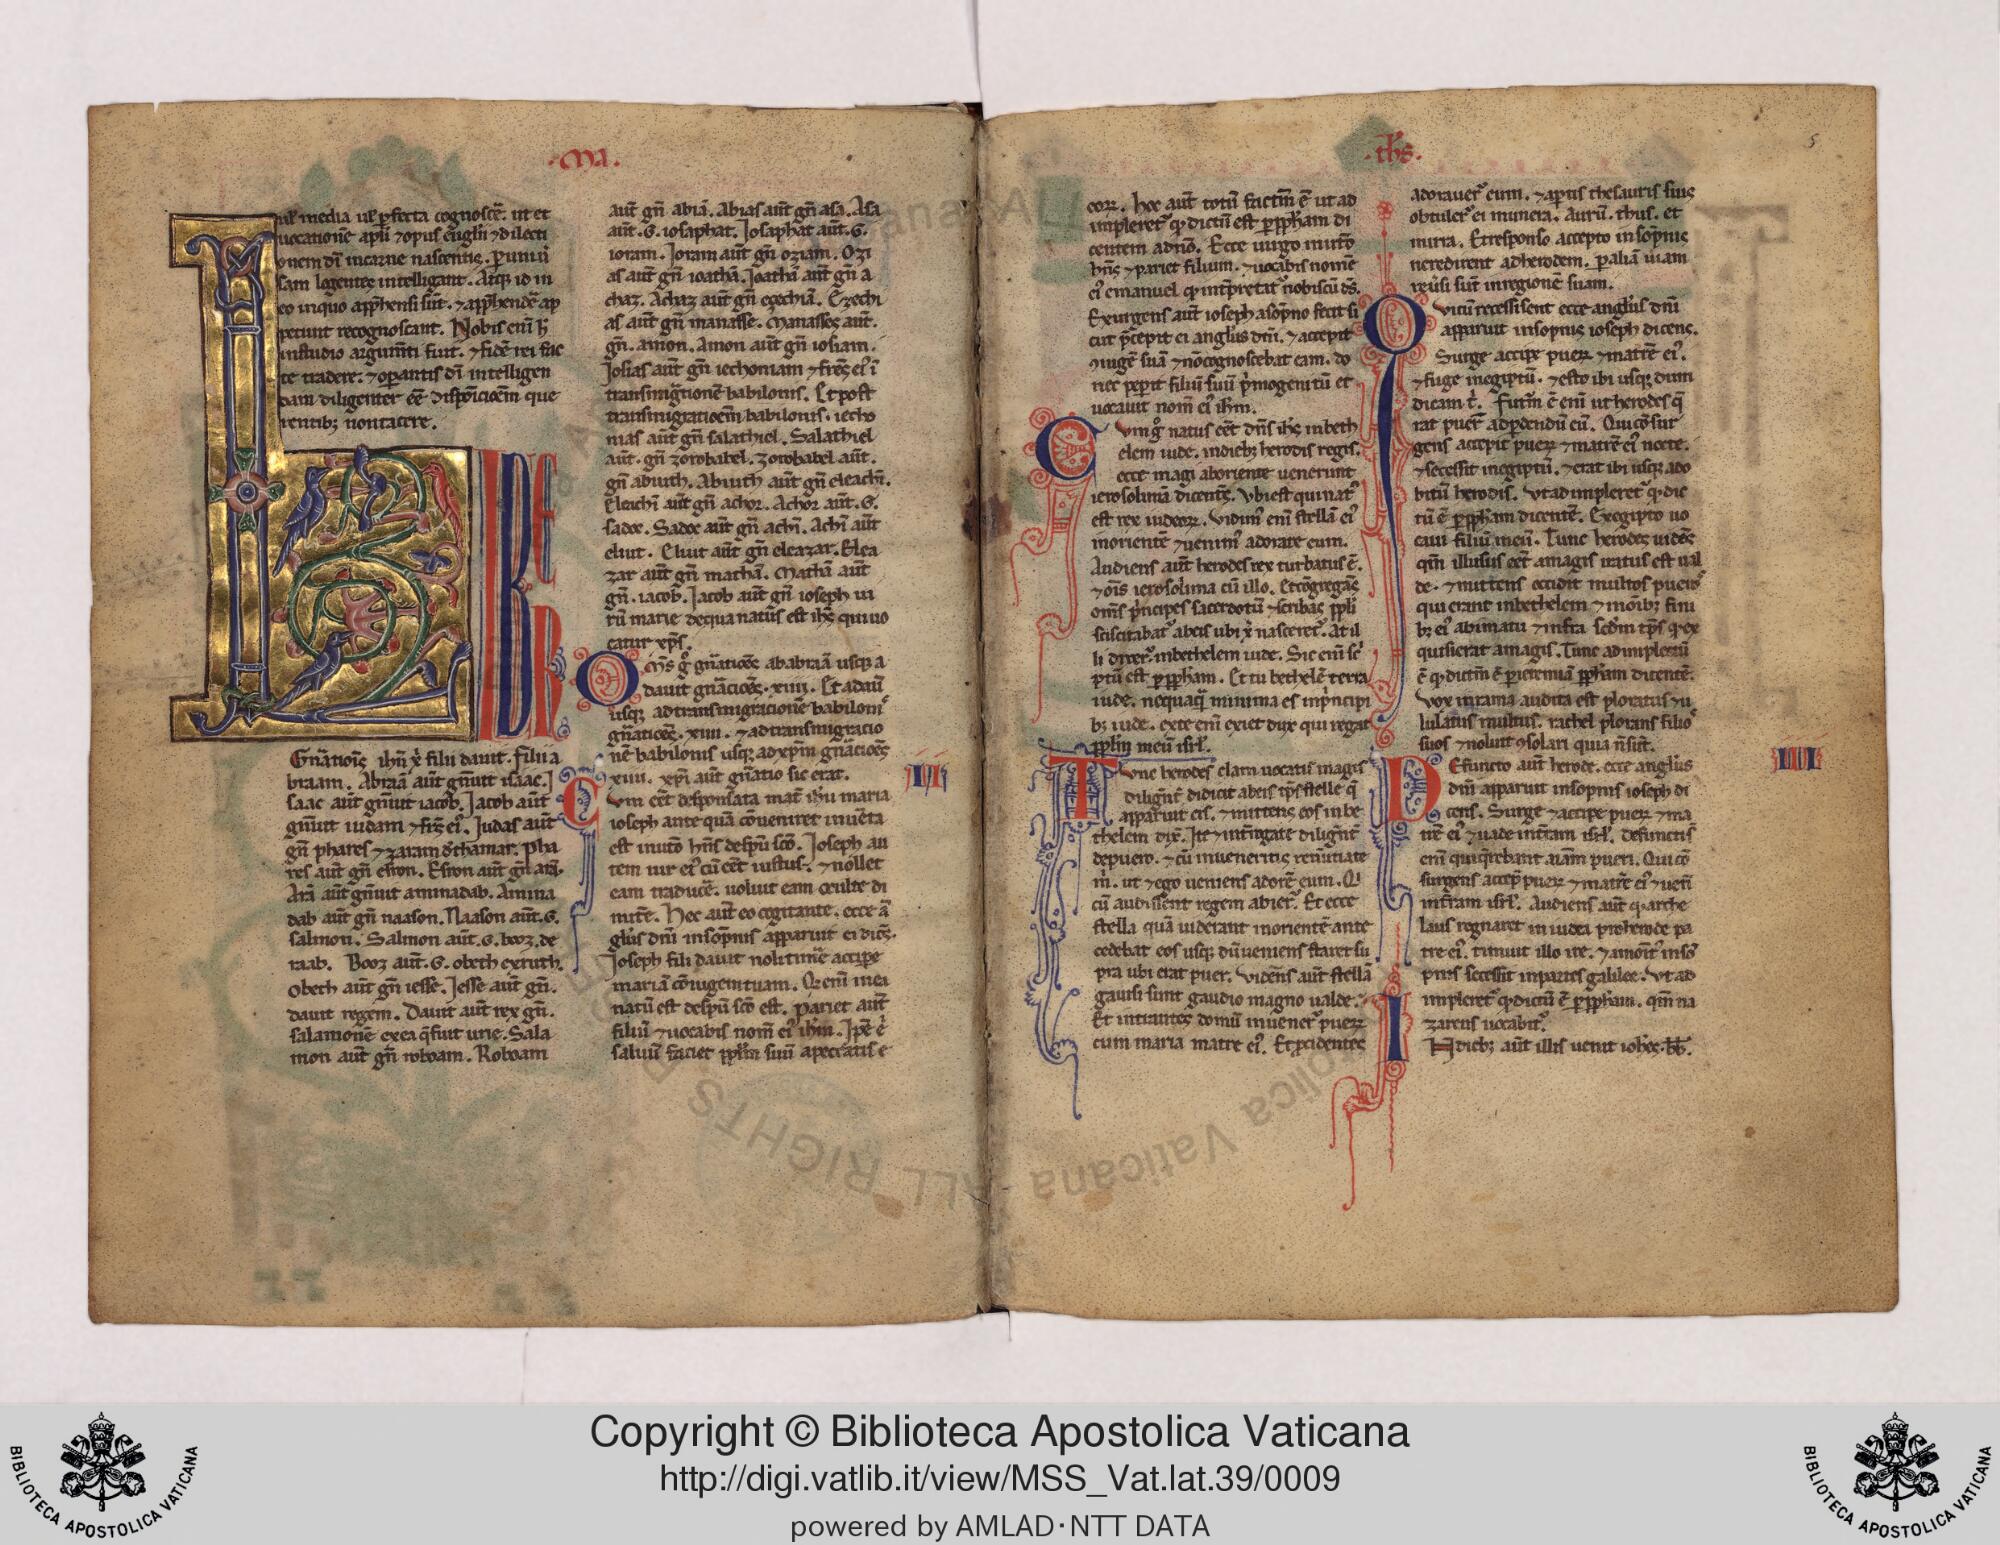 .Ma.
uł media uł pfecta cognoscē. ut et
uocationē apłi ⁊ opus euglii ⁊ dilecti
onem dī incarne nascentis. p uniuī
sam legentes intelligant. Atq; id in
eo in quo apphensi sūt. ⁊ apphendē ap
petunt recognoscant. Nobis enī h̄
in studio argumti fuit. ⁊ fidē rei fac
te tradere. ⁊ opantis dī intelligen
dam diligenter eē dispōicōem que
rentib; non tacere.
LIBER
Gn̄atiois ihū x̄ filii dauit. filii a
braam. Abraā aut̄ gn̄uit isaac. I
saac aut̄ gn̄uit iacob. Iacob aut̄
gn̄uit iudam ⁊ frs̄ ei'. Iudas aut̄
gn̄ phares ⁊ zaram d̄ thamar. Pha
res aut̄ gn̄ esron. Esron aut̄ gn̄ arā.
Arā aut̄ gn̄uit aminadab. Amina
dab aut̄ gn̄ naason. Naason aut̄. G.
salmon. Salmon aut̄. G. booz. de
raab. Booz aut̄. G. obeth ex ruth.
Obeth aut̄ gn̄ iesse. Iesse aut̄ gn̄.
dauit regem. Dauit aut̄ rex gn̄.
salamonē ex ea q̄ fuit urie. Sala
mon aut̄ gn̄ roboam. Roboam
aut̄ gn̄ abiā. Abias aut̄ gn̄ asa. Asa
aut̄. G. iosaphat. Iosaphat aut̄. G.
ioram. Ioram aut̄ gn̄ oziam. Ozi
as aut̄ gn̄ ioathā. Ioathā aut̄ gn̄ a
chaz. Achaz aut̄ gn̄ ezechiā. Ezechi
as aut̄ gn̄ manasse. Manasses aut̄.
gn̄. amon. Amon aut̄ gn̄ iosiam.
Iosias aut̄ gn̄ iechoniam ⁊ frs̄ ei' ī
transmigrtionē babilonis. Et post
transmigratioēm babilonis. iecho
nias aut̄ gn̄ salathiel. Salathiel
aut̄. gn̄ zorobabel. Zorobabel aut̄.
gn̄ abiuth. Abiuth aut̄ gn̄ eleachī.
Eleichī aut̄ gn̄ achor. Achor aut̄. G.
sadoc. Sadoc aut̄ gn̄ achī. Achī aut̄
eliut. Eliut aut̄ gn̄ eleazar. Elea
zar aut̄ gn̄ mathā. Mathā aut̄
gn̄. iacob. Iacob aut̄ gn̄ ioseph ui
rū marie de qua natus est ihs̄ qui uo
catur xp̄s.
Oms̄ g̊ gn̄atioēs ab abraā usq; a
dauit gn̄acioēs. xiiii. Et a dauī
usq; ad transmigracionē babiloni'
gn̄atioēs. xiiii. ⁊ ad transmigracio
nē babilonis usq; ad xp̄m gn̄acioēs
xiiii. xp̄i aut̄ gn̄atio sic erat.
II
Cvm eēt desponsata mat̄ ihū maria
ioseph ante quā cōuenirent inuēta
est in utō hn̄s de spū scō. Ioseph au
tem uir ei' cū eēt iustus. ⁊ nollet
eam traducē. uoluit eam oculte di
mitē. Hec aut̄ eo cogitante. ecce ā
glus dnī in sopnis apparuit ei dicēs.
Ioseph fili dauit noli timē accipe
mariā cōiugem tuam. Q enī in ea
natū est de spū scō est. Pariet aut̄
filiū ⁊ uocabis nom̄ ei' ihm̄. Ipē ē'
saluū faciet pplm̄ suū a peccatis e
.ths.
5
eorꝝ. Hec aut̄ totū factm̄ ē ut ad
impleret' qd dictū est p ppham di
centem a dnō. Ecce uirgo in utō
hn̄s ⁊ pariet filium. ⁊ uocabis nomē
ei' emanuel qd intp̄retat' nobiscū ds̄.
Exurgens aut̄ ioseph a sopno fecit si
cut p̄cepit ei anglus dnī. ⁊ accepit
9iugē suā ⁊ nō cognoscebat eam. do
nec pepit filiū suū p̄mogenitū et
uocauit nom̄ ei' ihm̄.
Cvm g̊ natus eēt dns̄ ihs̄ in beth
elem iude. in dieb; herodis regis.
ecce magi ab oriente uenerunt
ierosolimā dicentes. Vbi est qui nat'
est rex iudeorꝝ. Vidim' enī stellā ei'
in oriente ⁊ uenim' adorare eum.
Audiens aut̄ herodes rex turbatus ē.
⁊ ois ierosolima cū illo. Et cōgregās
oms̄ p̄ncipes sacerdotū ⁊ scribas ppli
sciscitabat' ab eis ubi x̄ nasceret'. At il
li dixer'. in bethelem iude. Sic enī sc'
ptū est p ppham. Et tu bethelē terra
iude. nequaq̄ minima es in p̄ncipi
b; iude. ex te enī exiet dux qui regat
pplm̄ meū isrł.
Tvnc herodes clam uocatis magis
diligent̄ didicit ab eis tps̄ stelle q̄
apparuit eis. ⁊ mittens eos in be
thelem dix̄. Ite ⁊ int̄rogate diligent̄
de puero. ⁊ cū inueneritis renūtiate
m̄. ut ⁊ ego ueniens adorē eum. Q'
cū audissent regem abier'. Et ecce
stella quā uiderant in oriente ante
cedebat eos usq; dū ueniens staret su
pra ubi erat puer. Videns aut̄ stellā
gauisi sunt gaudio magno ualde.
Et intrantes domū inuener' puerꝝ
cum maria matre ei'. Et pcidentes
adorauer' eum. ⁊ aptis thesauris suis
obtuler' ei munera. Aurū. thus. et
mirra. Et responso accepto in sopnis
ne redirent ad herodem. p aliā uiam
reuersi sūt in regionē suam.
Qvi cū recessissent ecce anglus dnī
apparuit in sopnis ioseph dicens.
Surge accipe puerꝝ ⁊ matrē ei'.
⁊ fuge in egiptū. ⁊ esto ibi usq; dum
dicam t'. Futm̄ ē enī ut herodes q̄
rat puer' ad pdendū eū. Qui cōsur
gens accepit puerꝝ ⁊ matrē ei' nocte.
⁊ secessit in egiptū. ⁊ erat ibi usq; ado
bitū herodis. Vt adimpleret' qd dic
tū ē p ppham dicentē. Ex egipto uo
caui filiū meū. Tunc herodes uidēs
qm̄ illusus eēt a magis iratus est ual
de. ⁊ mittens occidit multos pueros
qui erant in bethelem ⁊ in oib; fini
b; ei' a bimatu ⁊ infra scdm̄ tps̄ qd ex
quisierat a magis. Tunc adimpletū
ē qd dictm̄ ē p ieremiā ppham dicentē.
Vox in rama audita est ploratus ⁊ u
lulatus multus. rachel plorans filio'
suos ⁊ noluit 9solari quia n̄ sūt.
III
Defuncto aut̄ herode. ecce anglus
dnī apparuit in sopnis ioseph di
cens. Surge ⁊ accipe puerꝝ ⁊ ma
trē ei' ⁊ uade in t̄ram isrł. defuncti s
enī qui q̄rebant aīam pueri. Qui cō
surgens accep̄ puerꝝ ⁊ matrē ei' ⁊ uenī
in t̄ram isrł. Audiens aut̄ qd arche
laus regnaret in iudea p herode pa
tre ei'. timuit illo ire. ⁊ amonit' in sō
pnis secessit in partes galilee. Vt ad
impleret' qd dictū ē p ppham. qm̄ na
zareus uocabit'.
In dieb; aut̄ illis uenit iohes. bb̄.
Copyright © Biblioteca Apostolica Vaticana
http://digi.vatlib.it/view/MSS_Vat.lat.39/0009
powered by AMLAD·NTT DATA
BIBLIOTECA APOSTOLICA VATICANA
BIBLIOTECA APOSTOLICA VATICANA